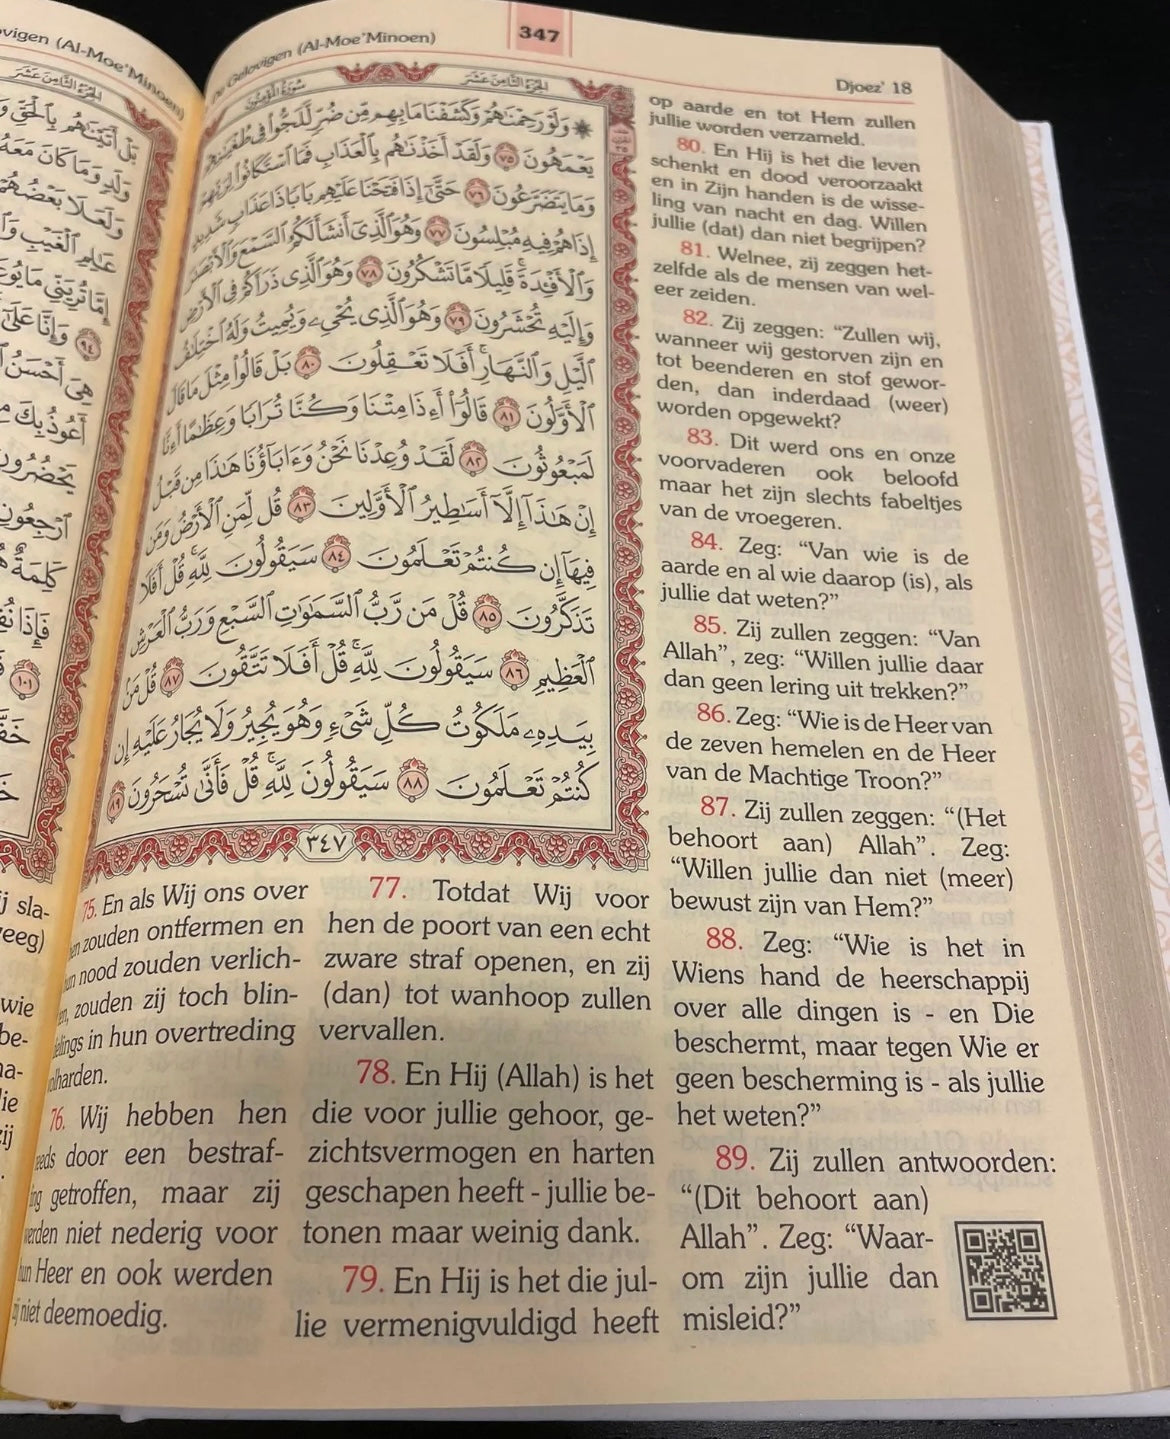 De Gelovigen (Al-Moe'Minoen)
347
Djoez' 18
سُورَةُ الْمُؤْمِنُونَ
الجُزْءُ الثَّامِنَ عَشَرَ
۞ وَلَوْ رَحِمْنَٰهُمْ وَكَشَفْنَا مَا بِهِم مِّن ضُرٍّ لَّلَجُّوا۟ فِى طُغْيَٰنِهِمْ
يَعْمَهُونَ ٧٥ وَلَقَدْ أَخَذْنَٰهُم بِٱلْعَذَابِ فَمَا ٱسْتَكَانُوا۟ لِرَبِّهِمْ
وَمَا يَتَضَرَّعُونَ ٧٦ حَتَّىٰٓ إِذَا فَتَحْنَا عَلَيْهِم بَابًا ذَا عَذَابٍ شَدِيدٍ
إِذَا هُمْ فِيهِ مُبْلِسُونَ ٧٧ وَهُوَ ٱلَّذِىٓ أَنشَأَ لَكُمُ ٱلسَّمْعَ وَٱلْأَبْصَٰرَ
وَٱلْأَفْـِٔدَةَ ۚ قَلِيلًا مَّا تَشْكُرُونَ ٧٨ وَهُوَ ٱلَّذِى ذَرَأَكُمْ فِى ٱلْأَرْضِ
وَإِلَيْهِ تُحْشَرُونَ ٧٩ وَهُوَ ٱلَّذِى يُحْىِۦ وَيُمِيتُ وَلَهُ ٱخْتِلَٰفُ
ٱلَّيْلِ وَٱلنَّهَارِ ۚ أَفَلَا تَعْقِلُونَ ٨٠ بَلْ قَالُوا۟ مِثْلَ مَا قَالَ
ٱلْأَوَّلُونَ ٨١ قَالُوٓا۟ أَءِذَا مِتْنَا وَكُنَّا تُرَابًا وَعِظَٰمًا أَءِنَّا
لَمَبْعُوثُونَ ٨٢ لَقَدْ وُعِدْنَا نَحْنُ وَءَابَآؤُنَا هَٰذَا مِن قَبْلُ
إِنْ هَٰذَآ إِلَّآ أَسَٰطِيرُ ٱلْأَوَّلِينَ ٨٣ قُل لِّمَنِ ٱلْأَرْضُ وَمَن
فِيهَآ إِن كُنتُمْ تَعْلَمُونَ ٨٤ سَيَقُولُونَ لِلَّهِ ۚ قُلْ أَفَلَا
تَذَكَّرُونَ ٨٥ قُلْ مَن رَّبُّ ٱلسَّمَٰوَٰتِ ٱلسَّبْعِ وَرَبُّ ٱلْعَرْشِ
ٱلْعَظِيمِ ٨٦ سَيَقُولُونَ لِلَّهِ ۚ قُلْ أَفَلَا تَتَّقُونَ ٨٧ قُلْ مَنۢ
بِيَدِهِۦ مَلَكُوتُ كُلِّ شَىْءٍ وَهُوَ يُجِيرُ وَلَا يُجَارُ عَلَيْهِ إِن
كُنتُمْ تَعْلَمُونَ ٨٨ سَيَقُولُونَ لِلَّهِ ۚ قُلْ فَأَنَّىٰ تُسْحَرُونَ ٨٩
٣٤٧
75. En als Wij ons over
zouden ontfermen en
nood zouden verlich-
zouden zij toch blin-
delings in hun overtreding
volharden.
76. Wij hebben hen
door een bestraf-
getroffen, maar zij
werden niet nederig voor
hun Heer en ook werden
zij niet deemoedig.
77. Totdat Wij voor
hen de poort van een echt
zware straf openen, en zij
(dan) tot wanhoop zullen
vervallen.
78. En Hij (Allah) is het
die voor jullie gehoor, ge-
zichtsvermogen en harten
geschapen heeft - jullie be-
tonen maar weinig dank.
79. En Hij is het die jul-
lie vermenigvuldigd heeft
op aarde en tot Hem zullen
jullie worden verzameld.
80. En Hij is het die leven
schenkt en dood veroorzaakt
en in Zijn handen is de wisse-
ling van nacht en dag. Willen
jullie (dat) dan niet begrijpen?
81. Welnee, zij zeggen het-
zelfde als de mensen van wel-
eer zeiden.
82. Zij zeggen: “Zullen wij,
wanneer wij gestorven zijn en
tot beenderen en stof gewor-
den, dan inderdaad (weer)
worden opgewekt?
83. Dit werd ons en onze
voorvaderen ook beloofd
maar het zijn slechts fabeltjes
van de vroegeren.
84. Zeg: “Van wie is de
aarde en al wie daarop (is), als
jullie dat weten?”
85. Zij zullen zeggen: “Van
Allah”, zeg: “Willen jullie daar
dan geen lering uit trekken?”
86. Zeg: “Wie is de Heer van
de zeven hemelen en de Heer
van de Machtige Troon?”
87. Zij zullen zeggen: “(Het
behoort aan) Allah”. Zeg:
“Willen jullie dan niet (meer)
bewust zijn van Hem?”
88. Zeg: “Wie is het in
Wiens hand de heerschappij
over alle dingen is - en Die
beschermt, maar tegen Wie er
geen bescherming is - als jullie
het weten?”
89. Zij zullen antwoorden:
“(Dit behoort aan)
Allah”. Zeg: “Waar-
om zijn jullie dan
misleid?”